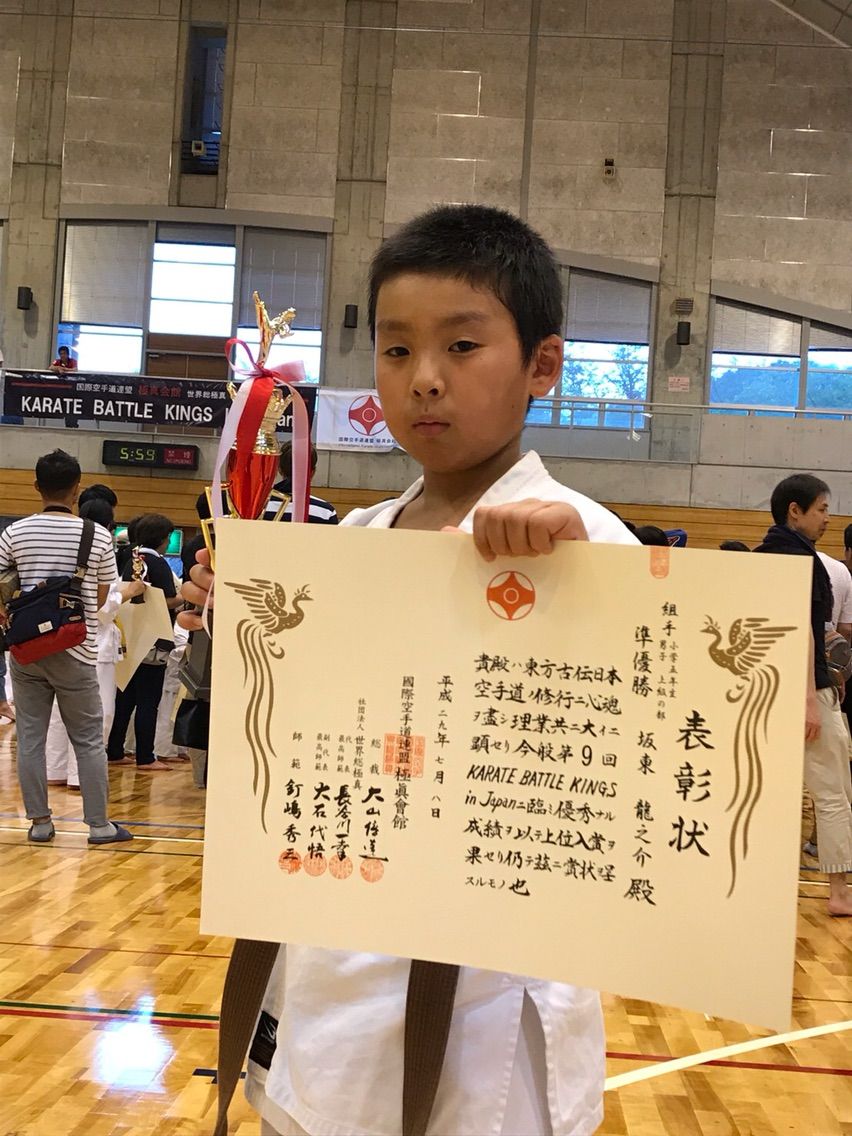 国際空手道連盟 極真会館 世界総極真
KARATE BATTLE KINGS
5:59
禁煙
表彰状
組手 小学五年生男子 上級の部
準優勝 坂東 龍之介 殿
貴殿ハ東方古伝日本
空手道ノ修行ニ心魂
ヲ盡シ理業共ニ大イニ
顕セリ今般第9回
KARATE BATTLE KINGS
in Japanニ臨ミ優秀ナル
成績ヲ以テ上位入賞ヲ
果セリ仍テ茲ニ賞状ヲ呈
スルモノ也
平成二九年七月八日
國際空手道連盟 極眞會館
総裁 大山倍達
社団法人 世界総極真
代表 最高師範 長谷川一幸
副代表 最高師範 大石代悟
師範 釘嶋秀三